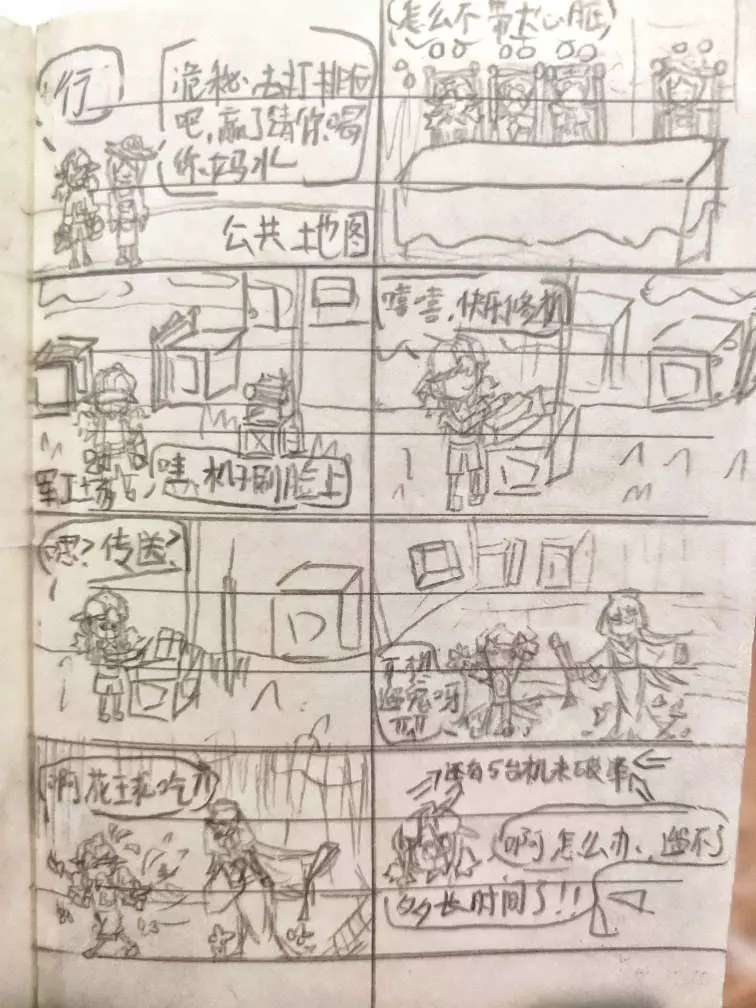 行
诡秘、去打排位
吧,赢了请你喝
你妈水
公共地图
怎么不带大心脏
军工场
哇,机子刷脸上
嘻嘻,快乐修机
嗯?传送?
不想
遛鬼呀
!!!
啊 花王来吃刀
还有5台机未破译
啊 怎么办、遛不了
多长时间了!!